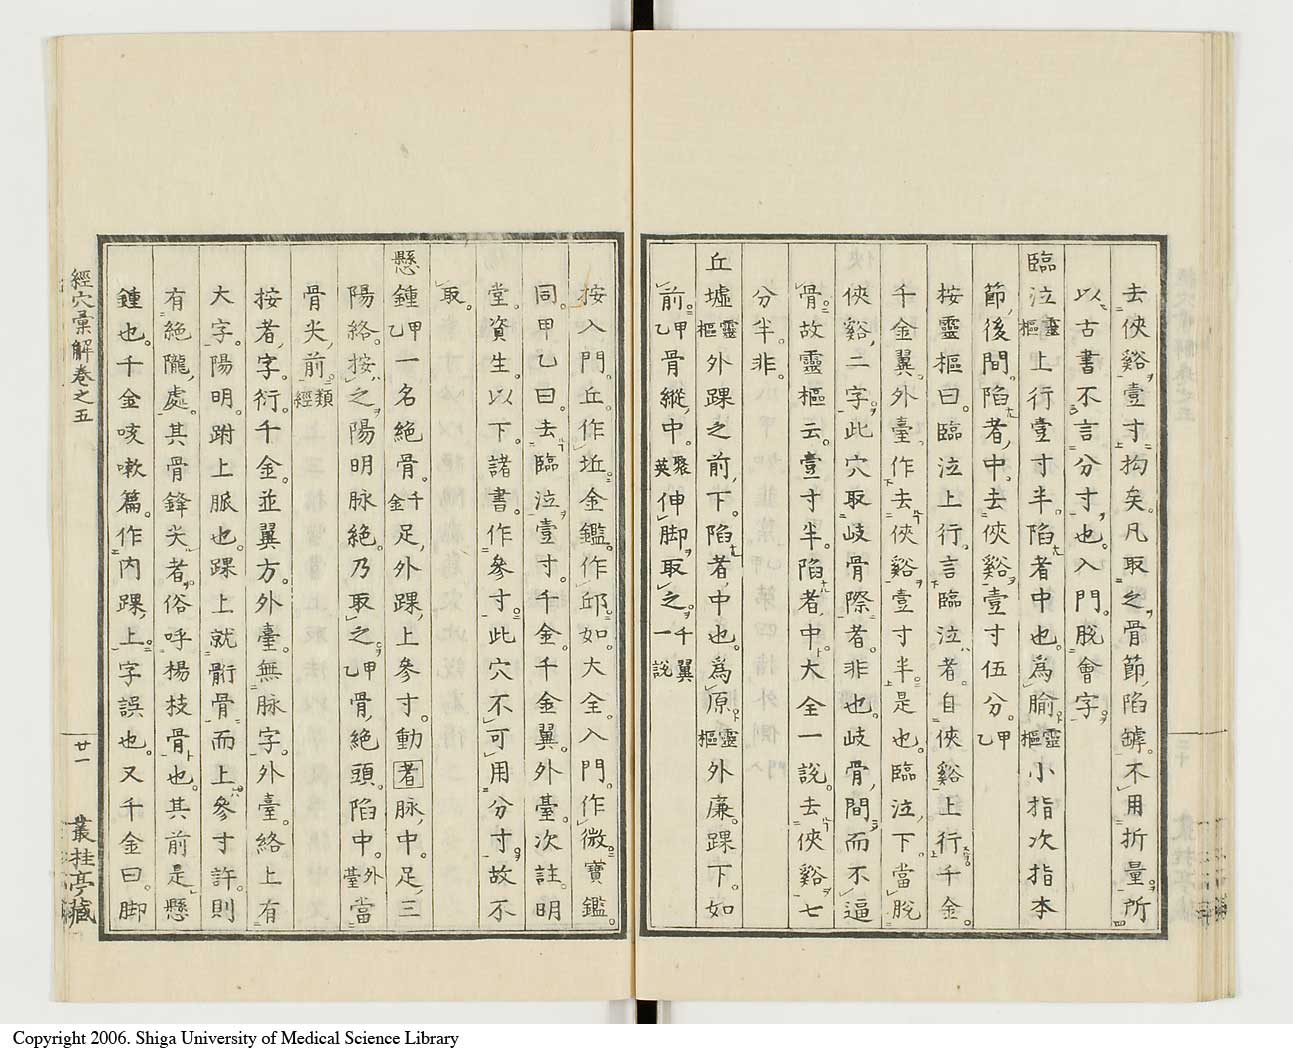 去俠谿壹寸拘矣凡取之骨節陷罅不用折量所
以古書不言分寸也入門脫會字
臨泣靈樞上行壹寸半陷者中也爲腧靈樞小指次指本
節後間陷者中去俠谿壹寸伍分甲乙
按靈樞曰臨泣上行言臨泣者自俠谿上行千金
千金翼外臺作去俠谿壹寸半是也臨泣下當脫
俠谿二字此穴取岐骨際者非也岐骨間而不逼
骨故靈樞云壹寸半陷者中大全一說去俠谿七
分半非
丘墟靈樞外踝之前下陷者中也爲原靈樞外廉踝下如
前甲乙骨縱中聚英伸脚取之千翼一說
按入門丘作坵金鑑作邱如大全入門作微寶鑑
同甲乙曰去臨泣壹寸千金千金翼外臺次註明
堂資生以下諸書作參寸此穴不可用分寸故不
取
懸鍾甲乙一名絶骨千金足外踝上參寸動者脉中足三
陽絡按之陽明脉絶乃取之甲乙骨絶頭陷中外臺當
骨尖前類經
按者字衍千金並翼方外臺無脉字外臺絡上有
大字陽明跗上脈也踝上就䯒骨而上參寸許則
有絶隴處其骨鋒尖者俗呼楊枝骨也其前是懸
鍾也千金咳嗽篇作內踝上字誤也又千金曰脚
經穴彙解卷之五
廿一
叢桂亭藏
Copyright 2006. Shiga University of Medical Science Library